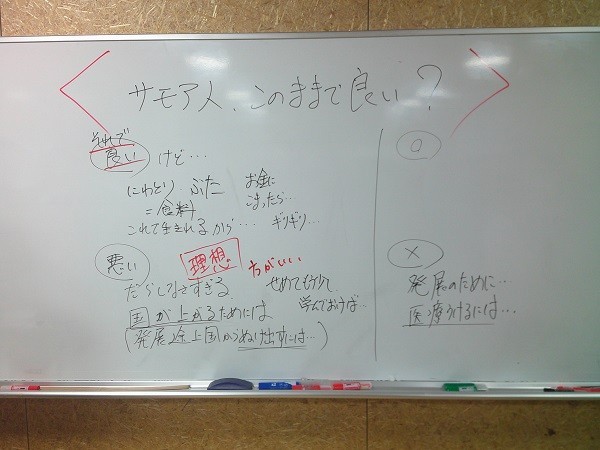 サモア人、このままで良い?
それで
良い けど…
にわとり ぶた お金に
こまったら…
=食料
これで生きれるから… ギリギリ…
悪い 理想 ちがいい
だらしなさすぎる せめてもう少し
学んでおけば…
国が上がるためには
(発展途上国からぬけ出すには…)
○
×
発展のために…
医療うけるには…